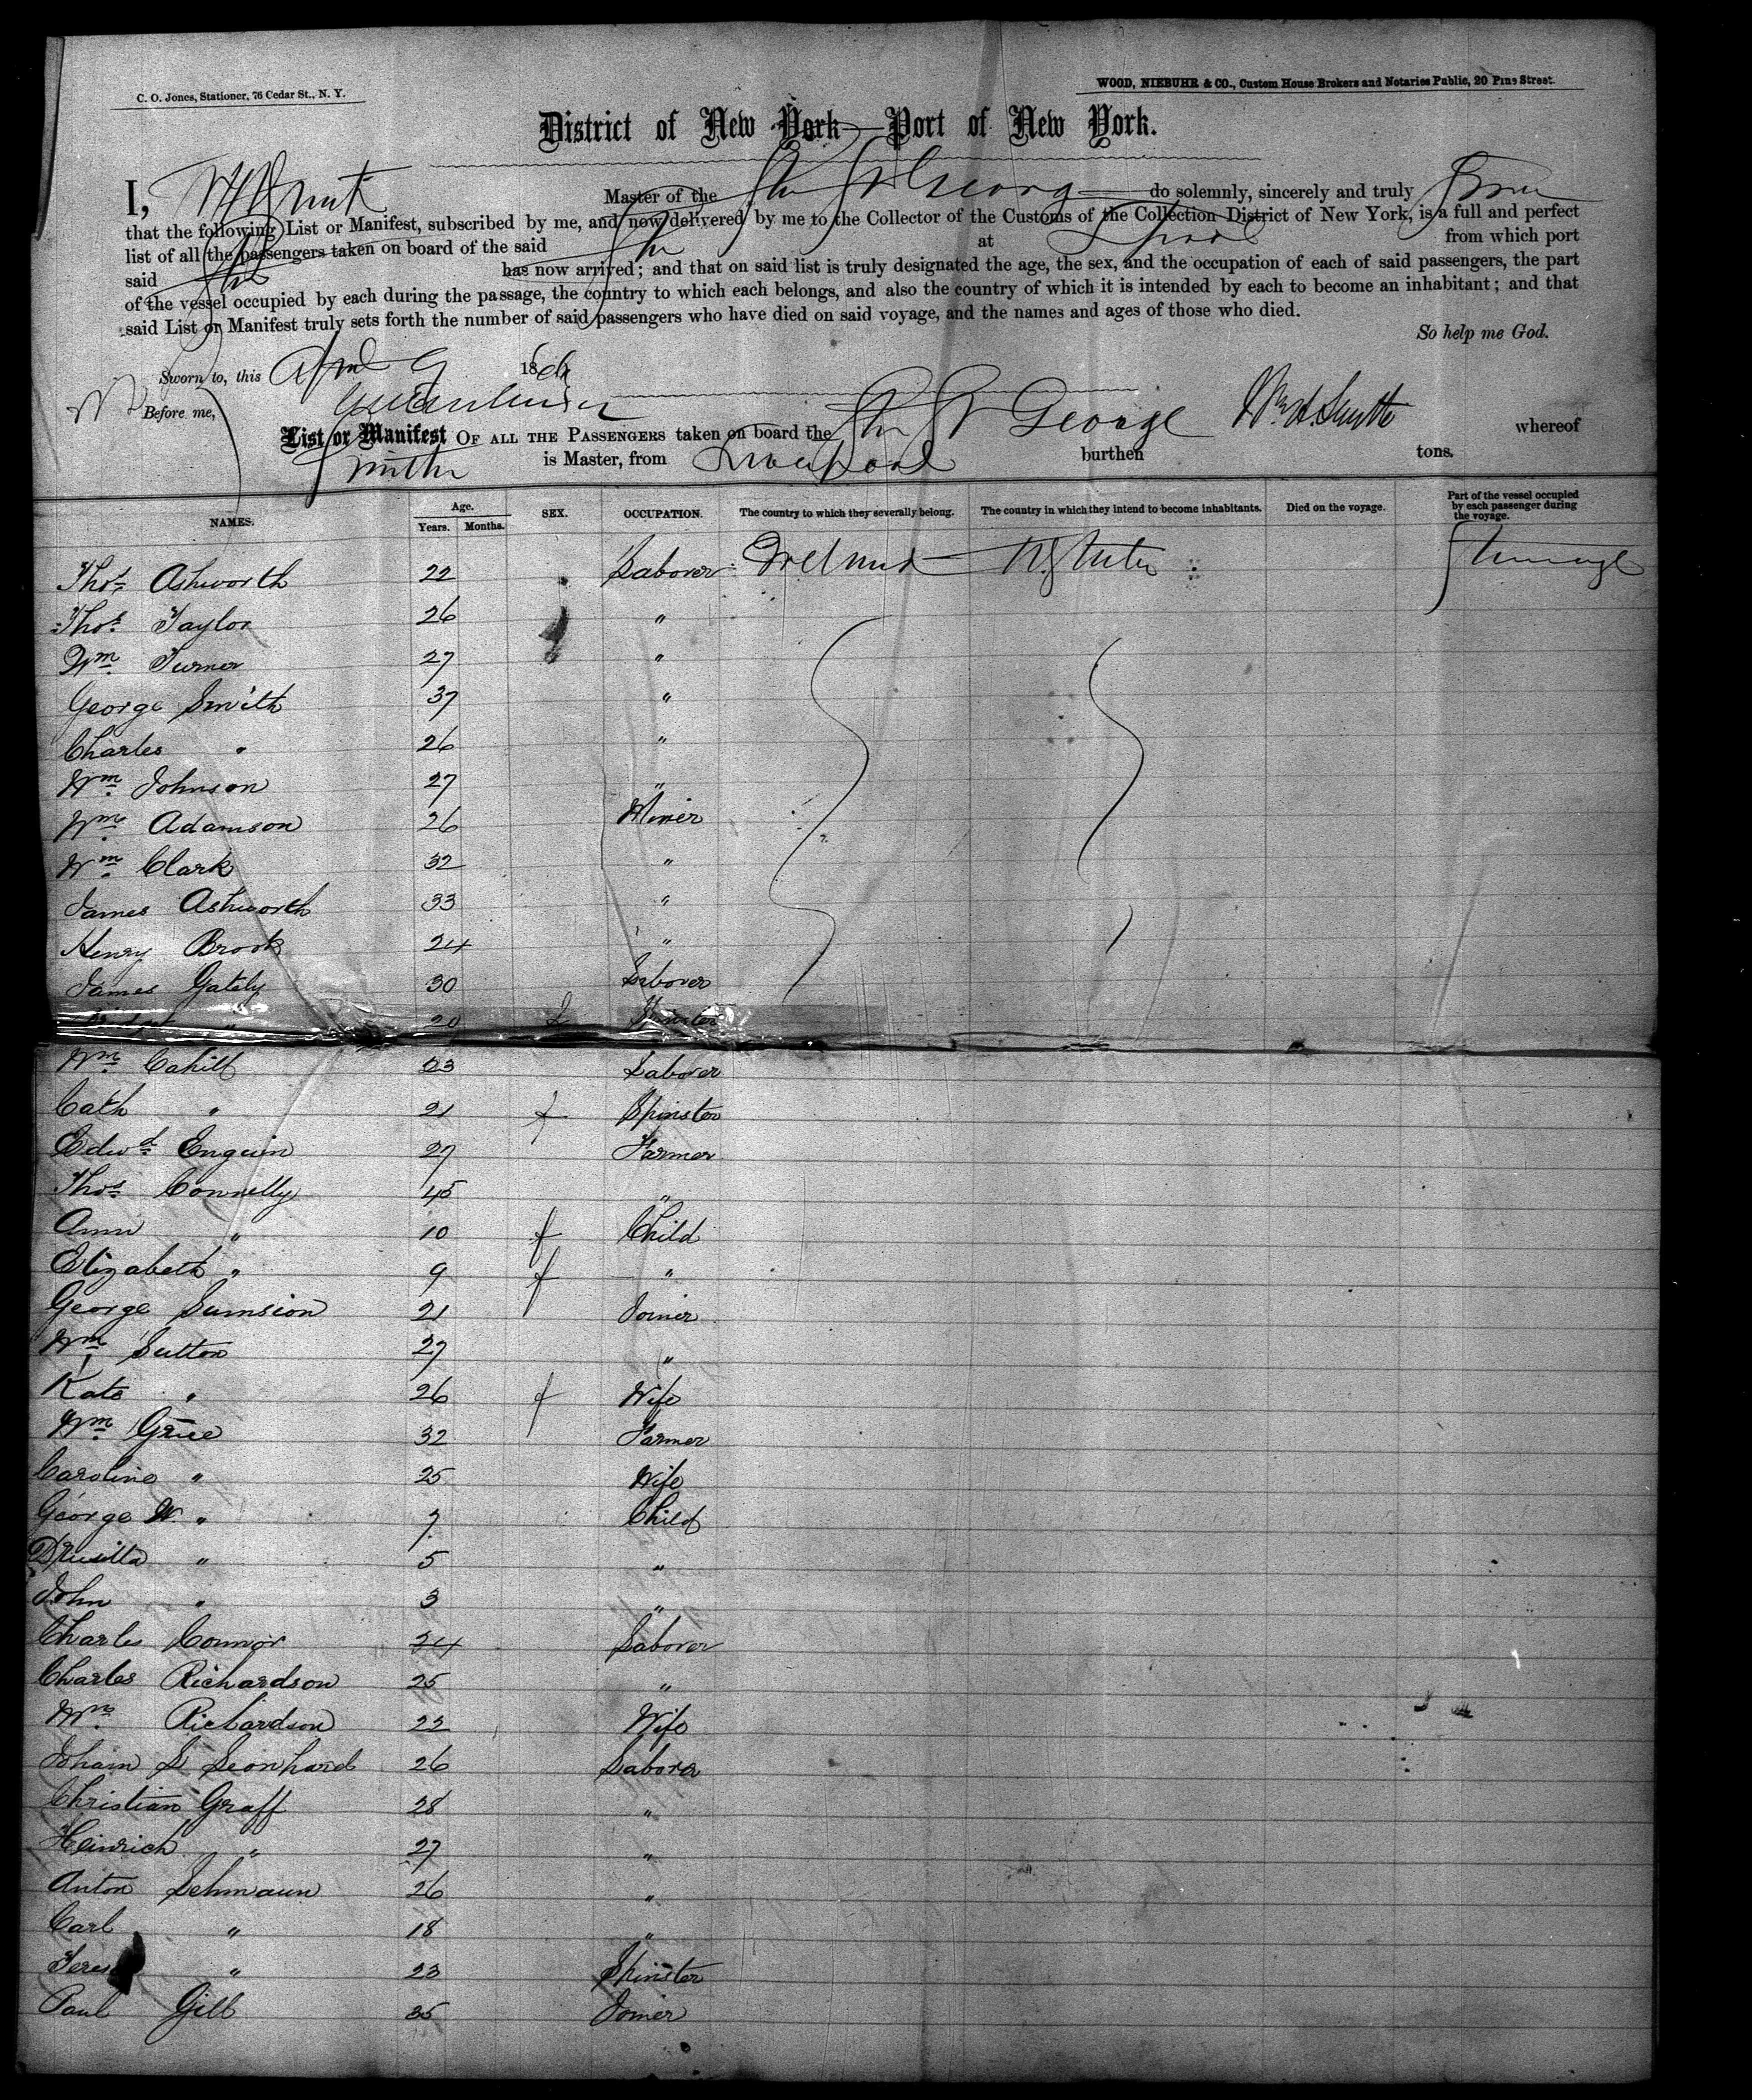 C. O. Jones, Stationer, 76 Cedar St., N. Y.
WOOD, NIEBUHR & CO., Custom House Brokers and Notaries Public, 20 Pine Street.
District of New York—Port of New York.
I, Master of the Str St George do solemnly, sincerely and truly
that the following List or Manifest, subscribed by me, and now delivered by me to the Collector of the Customs of the Collection District of New York, is a full and perfect
list of all the passengers taken on board of the said Str at Lpool from which port
said Str has now arrived; and that on said list is truly designated the age, the sex, and the occupation of each of said passengers, the part
of the vessel occupied by each during the passage, the country to which each belongs, and also the country of which it is intended by each to become an inhabitant; and that
said List or Manifest truly sets forth the number of said passengers who have died on said voyage, and the names and ages of those who died.
So help me God.
Sworn to, this April 9 186
Before me, Wm. H. Smith
List or Manifest OF ALL THE PASSENGERS taken on board the Str St George whereof
Smith is Master, from Liverpool burthen tons.
NAMES. Age. Years. Months. SEX. OCCUPATION. The country to which they severally belong. The country in which they intend to become inhabitants. Died on the voyage. Part of the vessel occupied by each passenger during the voyage.
Thos. Ashworth 22 Laborer Ireland U States Steerage
Thos. Taylor 26 "
Wm. Turner 27 "
George Smith 37 "
Charles " 26 "
Wm. Johnson 27 "
Wm. Adamson 26 Miner
Wm. Clark 32 "
James Ashworth 33 "
Henry Brook 24 "
James Gately 30 Laborer
" 20 f Spinster
Wm. Cahill 23 Laborer
Cath " 21 f Spinster
Edwd. Enguin 27 Farmer
Thos. Connelly 45 "
Ann " 10 f Child
Elizabeth " 9 f "
George Sumsion 21 Joiner
Wm. Sutton 27 "
Kate " 26 f Wife
Wm. Grice 32 Farmer
Caroline " 25 Wife
George W. " 7 Child
Drusilla " 5 "
John " 3 "
Charles Connor 24 Laborer
Charles Richardson 25 "
Mrs. Richardson 22 Wife
Johain S Leonhard 26 Laborer
Christian Graff 28 "
Heinrich " 27 "
Anton Sehmaun 26 "
Carl " 18 "
Teres " 23 Spinster
Paul Gill 35 Joiner